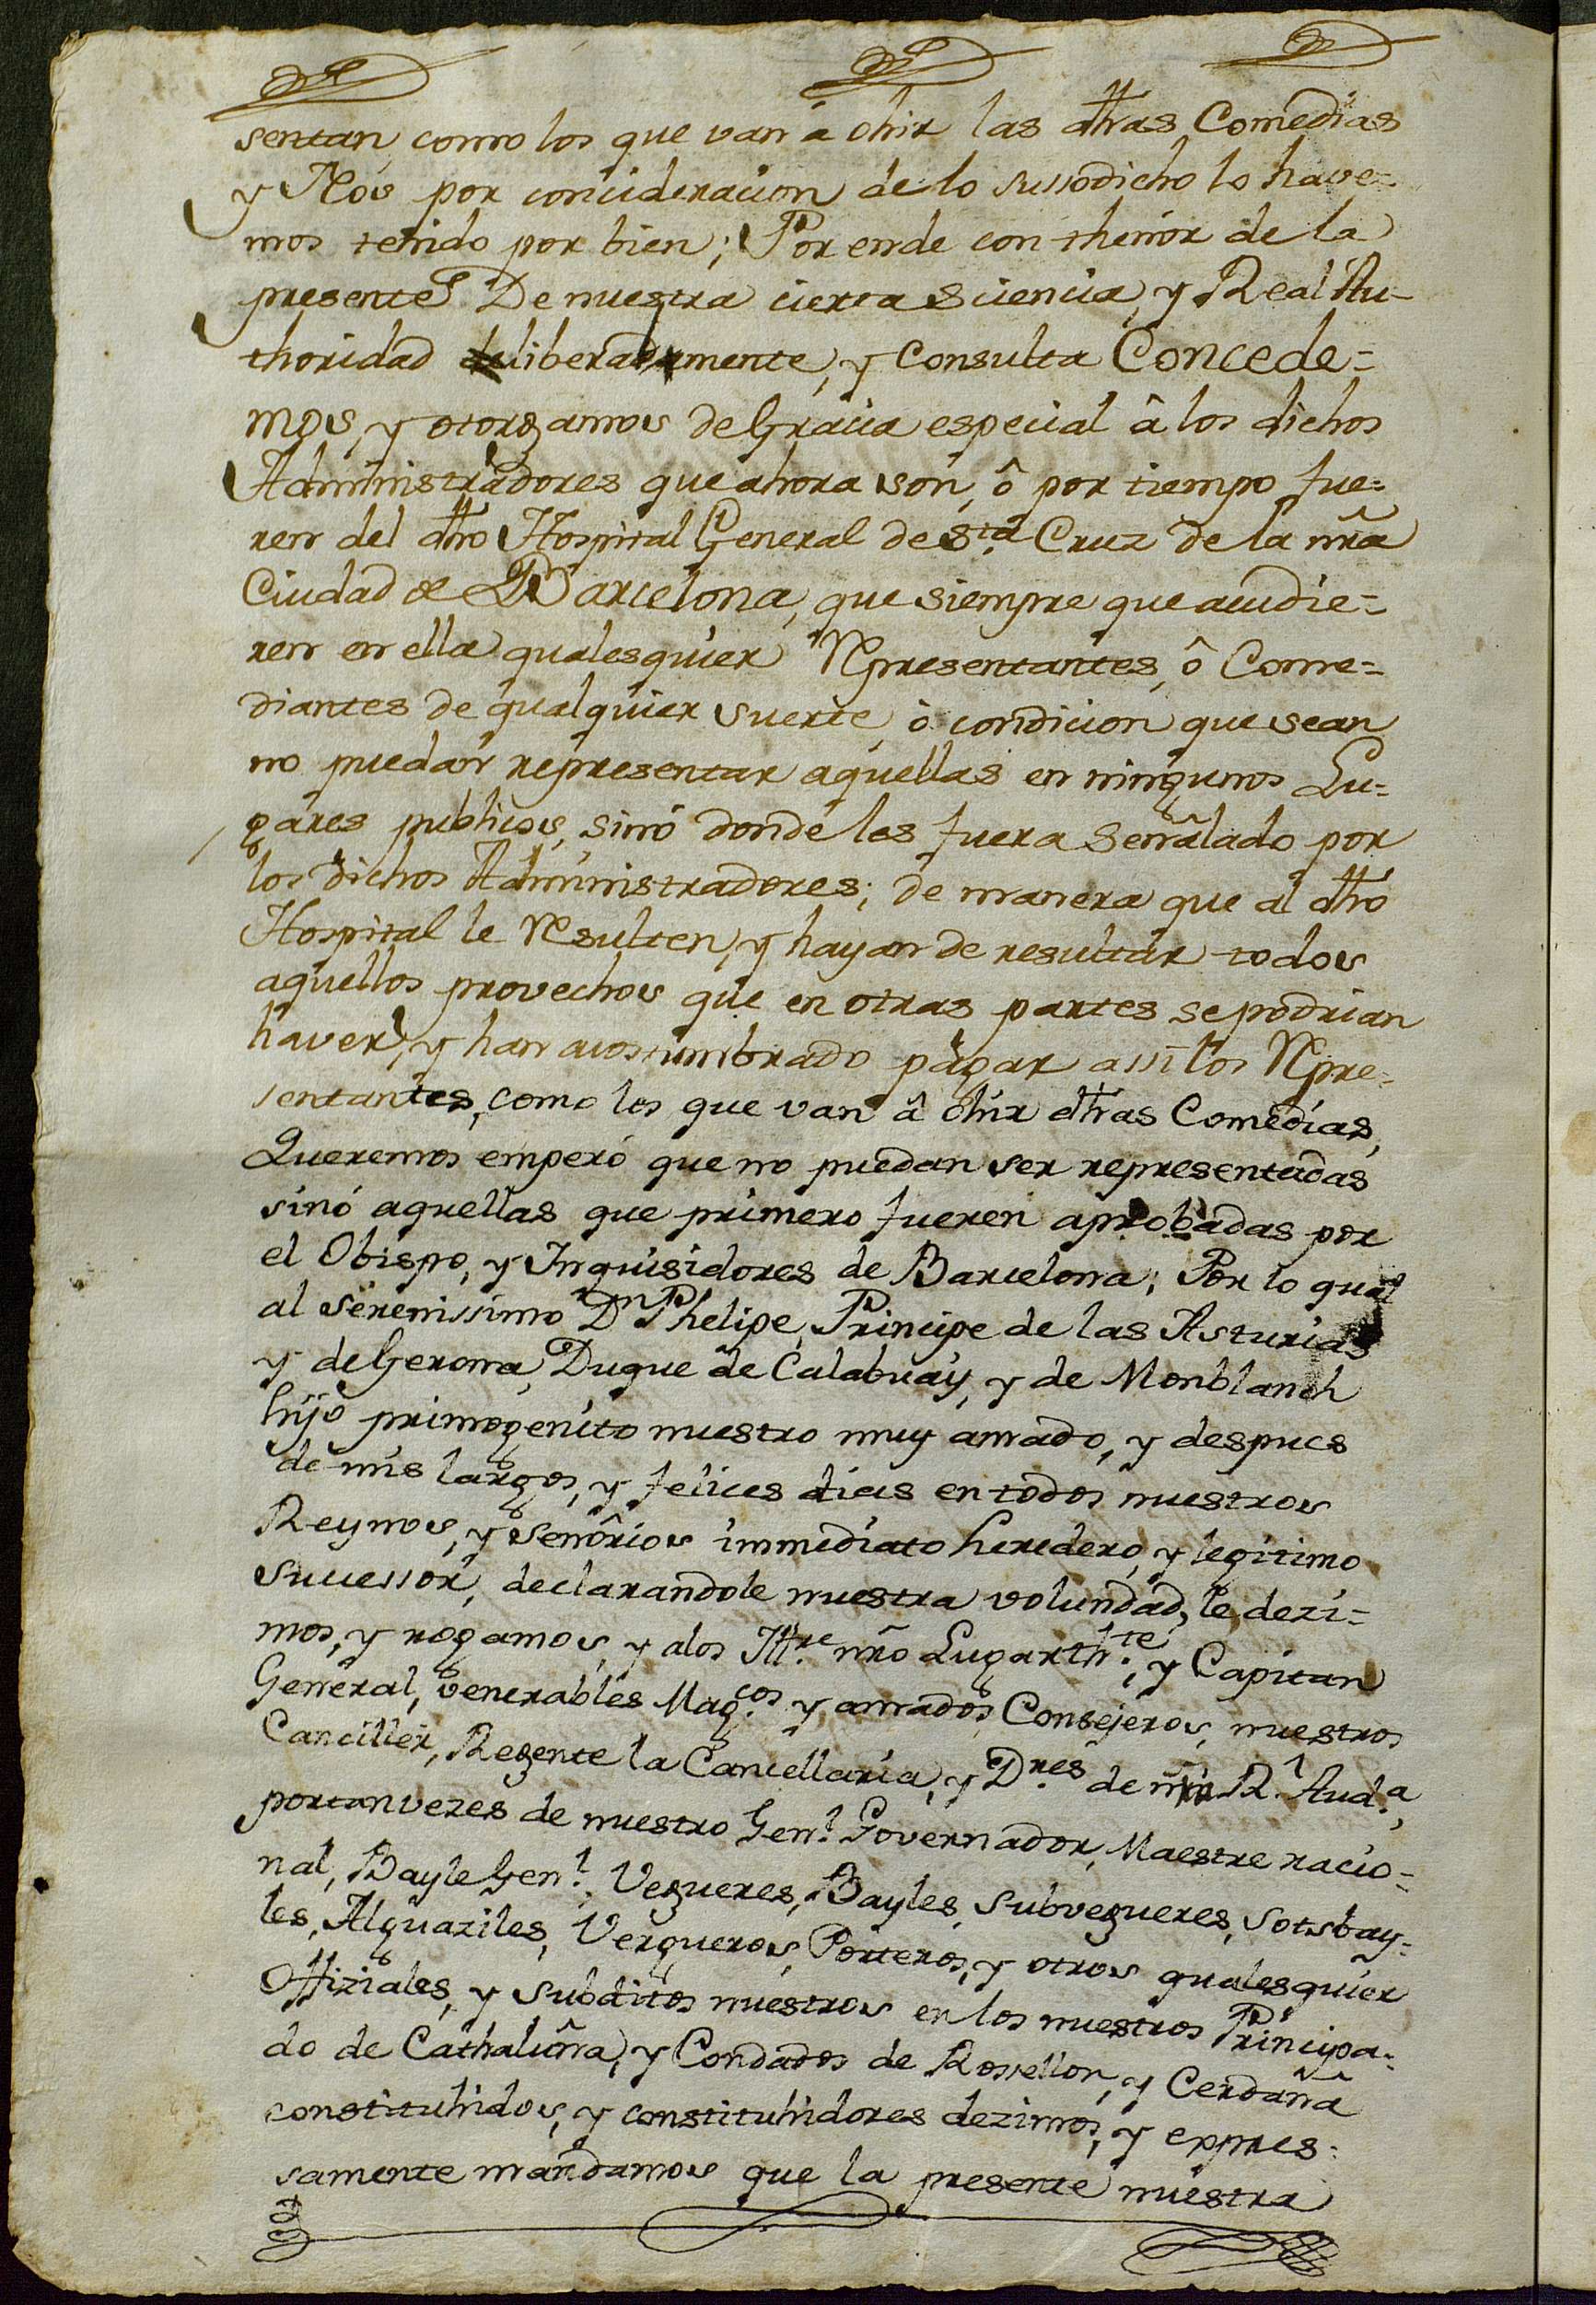 sentan, como los que van â ohir las dhas Comedias
y Nos por concideracion de lo sussodicho lo have-
mos tenido por bien; Por ende con thenor de la
presente De nuestra cierta sciencia, y Real Au-
thoridad deliberadamente, y consulta Concede=
mos, y otorgamos de Gracia especial â los dichos
Administradores que ahora són, ô por tiempo fue=
ren del dho Hospital General de Sta. Cruz de la nr̃a
Ciudad de Barcelona, que siempre que acudie=
ren en ella qualesquier Rpresentantes, ô Come=
diantes de qualquier suerte, ò condicion que sean
no puedan representar aquellas en ningunos Lu=
gares publicos, sinó donde les fuera señalado por
los dichos Administradores; de manera que al dho
Hospital le Resulten, y hayan de resultar todos
aquellos provechos que en otras partes se podrian
haver, y han acostumbrado pagar assi los Rpre-
sentantes, como los que van â ohir dhas Comedias,
Queremos emperó que no puedan ser representadas
sinó aquellas que primero fueren aprobadas por
el Obispo, y Inquisidores de Barcelona; Por lo qual
al serenissimo Dn Phelipe, Principe de las Asturias
y de Gerona, Duque de Calabuay, y de Monblanch
hijo primogenito nuestro muy amado, y despues
de mis largos, y felices dias en todos nuestros
Reynos, y señôrios immediato heredero, y legitimo
sucessor, declarandole nuestra voluntad, le dezi=
mos, y rogamos, y alos Illre. nr̃o Lugarthte., y Capitan
General, venerables Magcos. y amados Consejeros, nuestros
Canciller, Regente la Cancellaria, y Dres. de nr̃a Rl. Auda.,
portanvezes de nuestro Genl. Governador, Maestre racio=
nal, Bayle Genl. Vegueres, Bayles, subvegueres, sotsbay=
les, Alguaziles, Vergueros, Porteros, y otros qualesquier
Offiziales, y subditos nuestros en los nuestros Principa=
do de Cathaluña, y Condados de Rossellon, y Cerdaña
constituhidos, y constituhidores dezimos, y expres=
samente mandamos que la presente nuestra